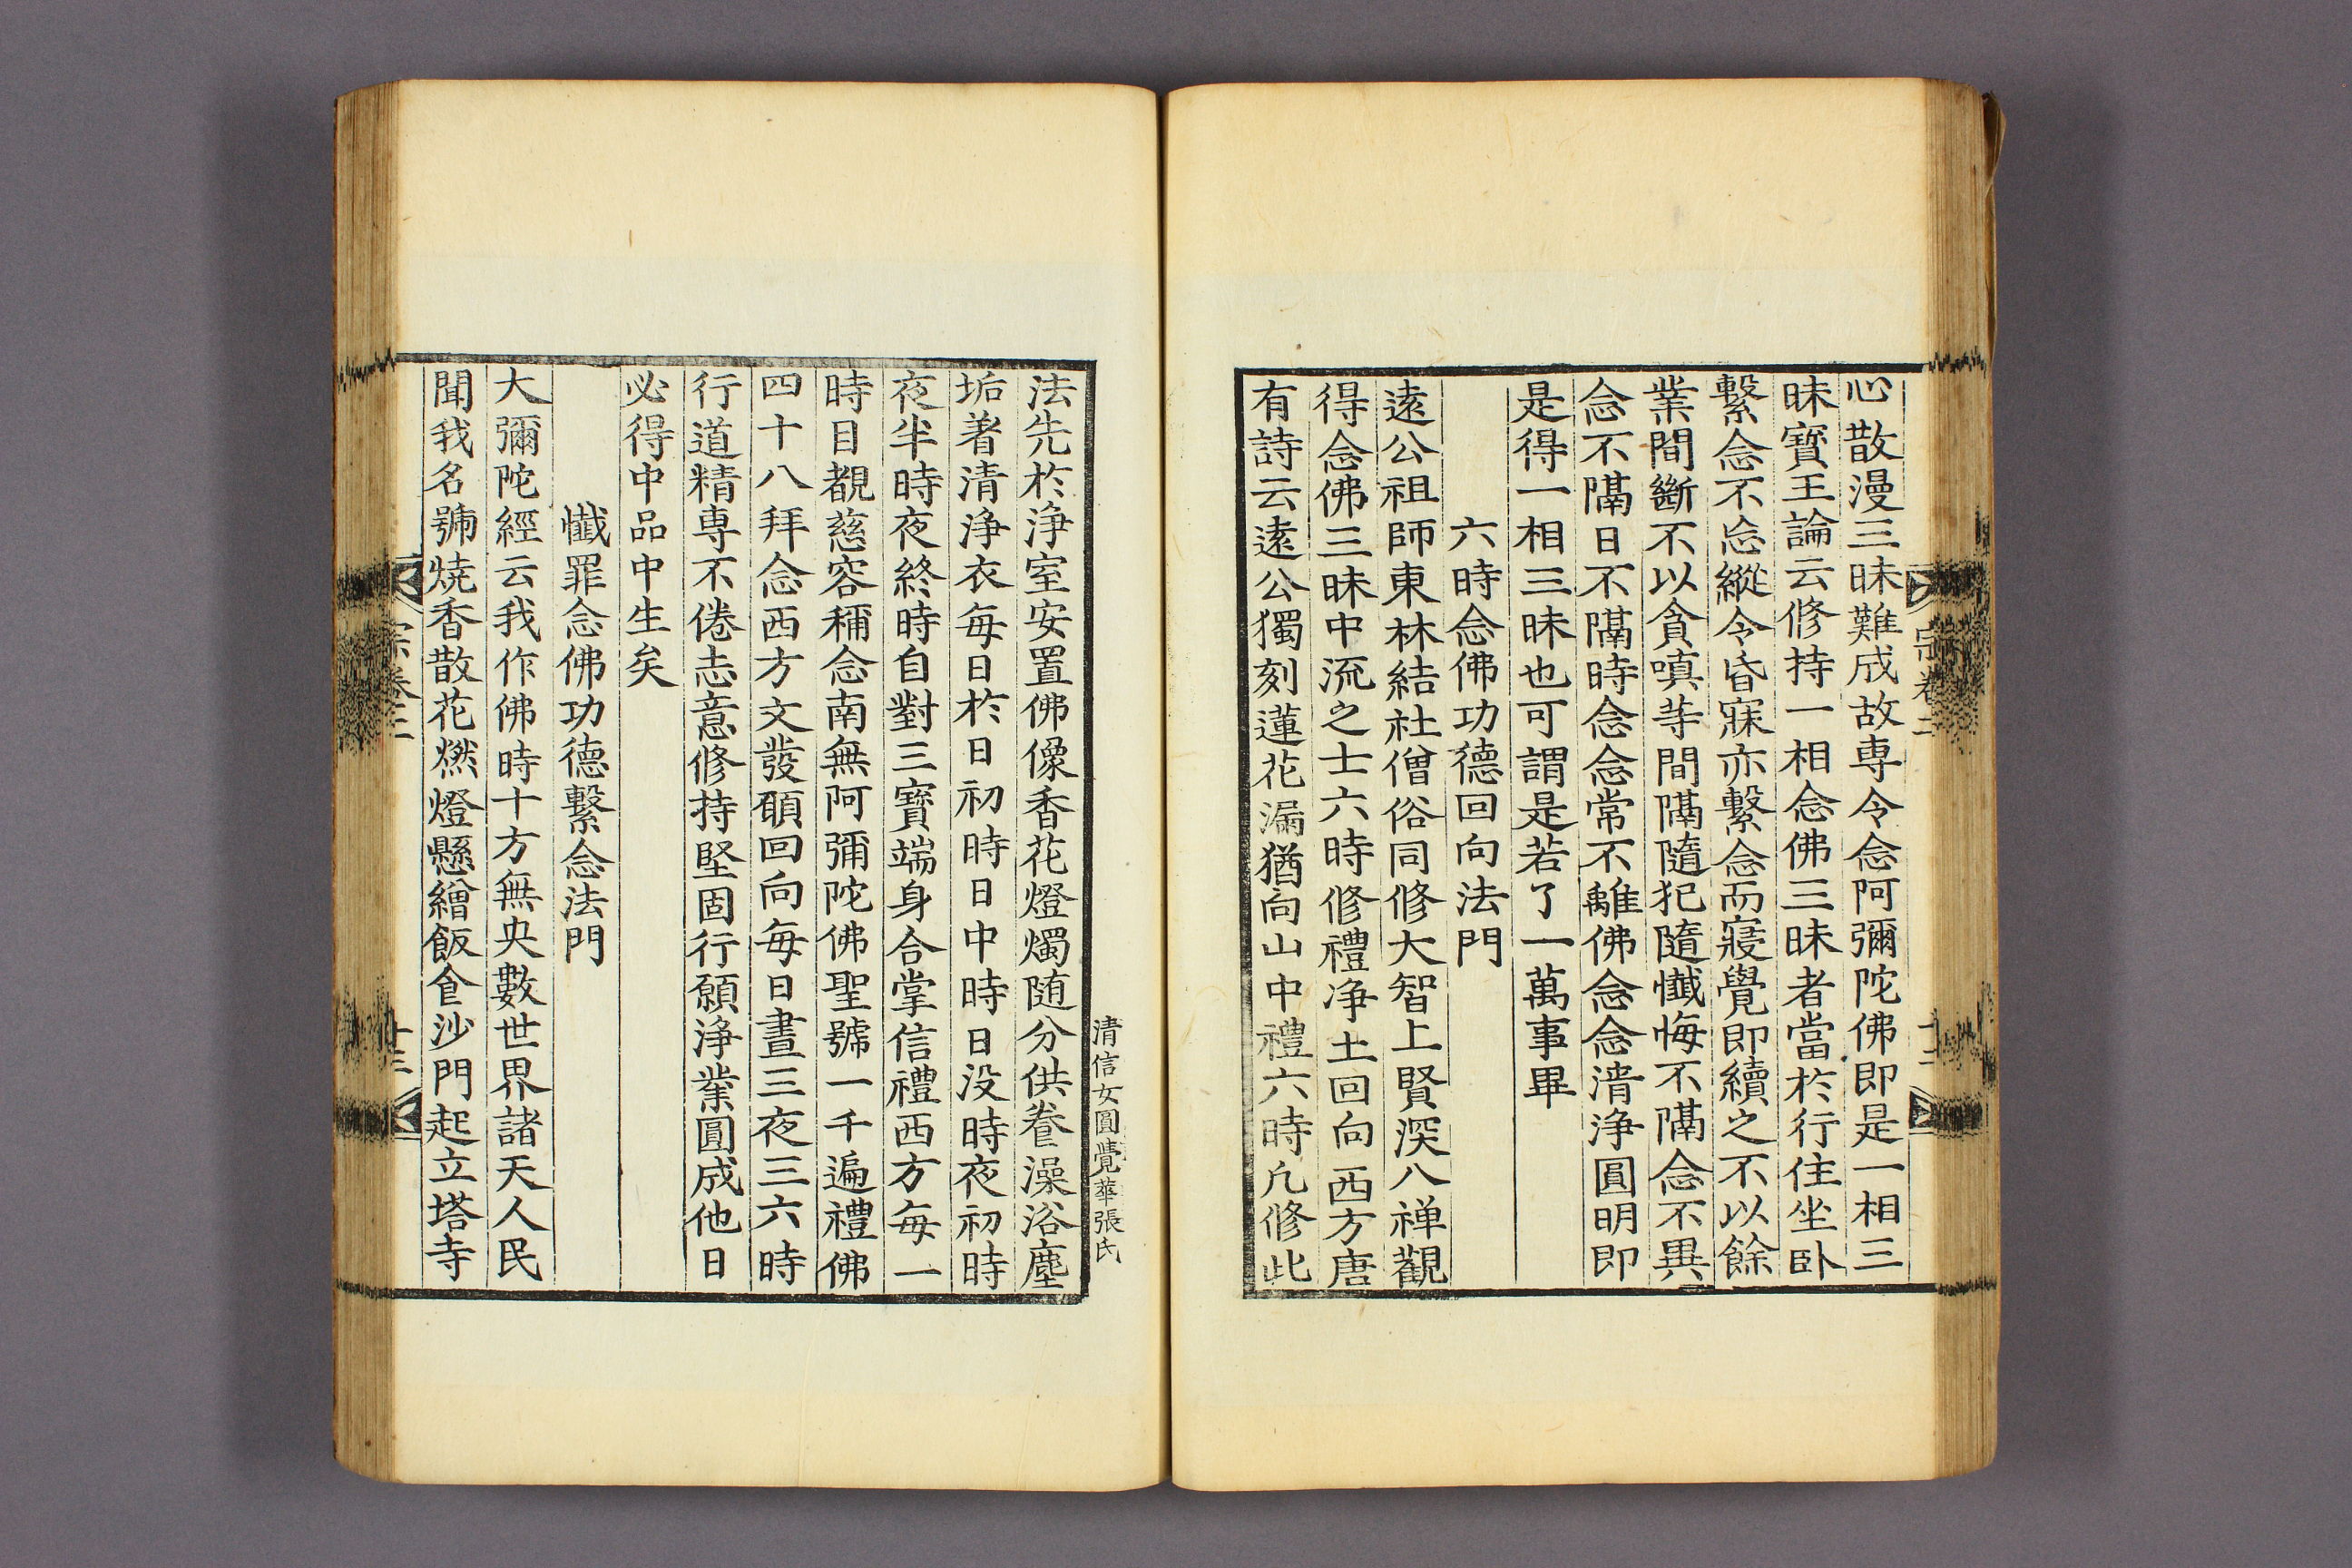 心散漫三昧難成故専令念阿彌陀佛即是一相三
昧寶王論云修持一相念佛三昧者當於行住坐卧
繫念不忘縱令昏寐亦繫念而寢覺即續之不以餘
業間斷不以貪嗔等間隔隨犯隨懺悔不隔念不異
念不隔日不隔時念念常不離佛念念清淨圓明即
是得一相三昧也可謂是若了一萬事畢
六時念佛功德回向法門
遠公祖師東林結社僧俗同修大智上賢深入禅觀
得念佛三昧中流之士六時修禮净土回向西方唐
有詩云遠公獨刻蓮花漏猶向山中禮六時凡修此
宗卷二
十二
清信女圓覺華張氏
法先於淨室安置佛像香花燈燭随分供養澡浴塵
垢著清淨衣每日於日初時日中時日没時夜初時
夜半時夜終時自對三寶端身合掌信禮西方每一
時目覩慈容稱念南無阿彌陀佛聖號一千遍禮佛
四十八拜念西方文發願回向每日晝三夜三六時
行道精専不倦志意修持堅固行願淨業圓成他日
必得中品中生矣
懺罪念佛功德繫念法門
大彌陀經云我作佛時十方無央數世界諸天人民
聞我名號燒香散花燃燈懸繒飯食沙門起立塔寺
宗卷二
十三